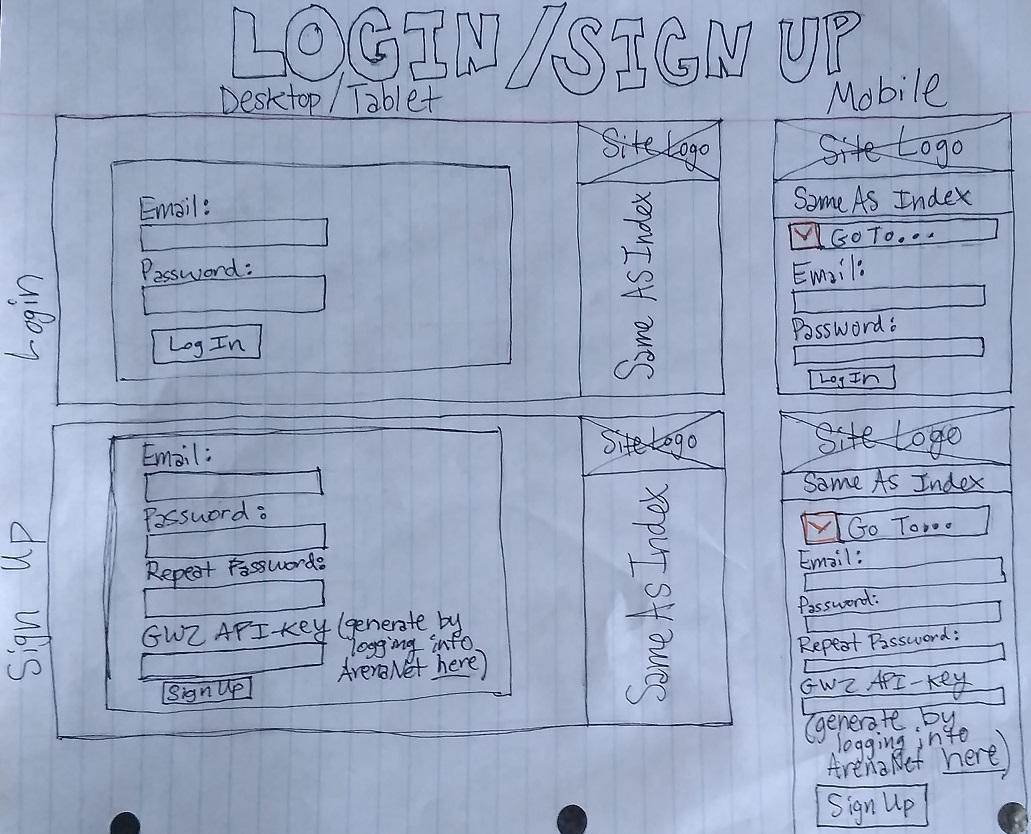 LOGIN/SIGN UP
Desktop/Tablet
Mobile
Login
Email:
Password:
Log In
Site Logo
Same As Index
Site Logo
Same As Index
Go To...
Email:
Password:
Log In
Sign Up
Email:
Password:
Repeat Password:
GW2 API-Key (generate by
logging into
ArenaNet here)
Sign Up
Site Logo
Same As Index
Site Logo
Same As Index
Go To...
Email:
Password:
Repeat Password:
GW2 API-Key
(generate by
logging into
ArenaNet here)
Sign Up